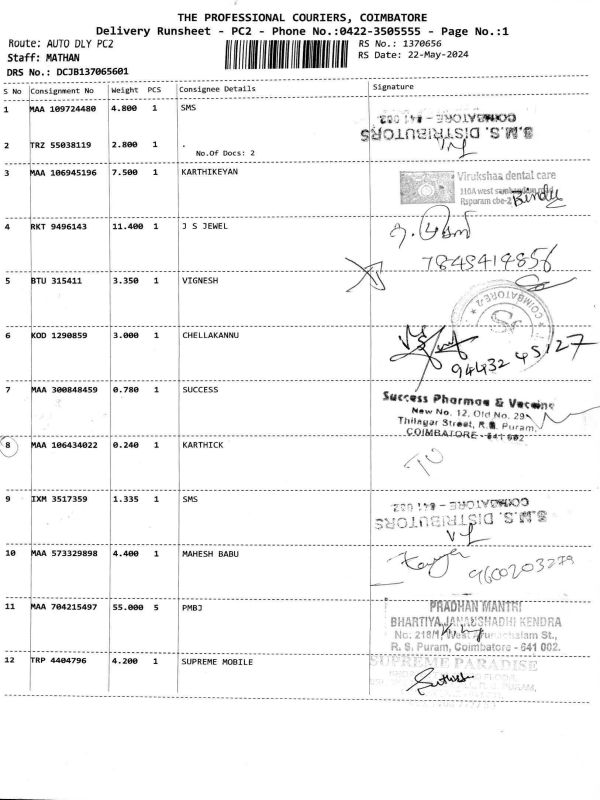 THE PROFESSIONAL COURIERS, COIMBATORE
Delivery Runsheet - PC2 - Phone No.:0422-3505555 - Page No.:1
Route: AUTO DLY PC2
RS No.: 1370656
Staff: MATHAN
RS Date: 22-May-2024
DRS No.: DCJB137065601
S No Consignment No Weight PCS Consignee Details Signature
1 MAA 109724480 4.800 1 SMS
COIMBATORE - 641 002.
S.M.S. DISTRIBUTORS
2 TRZ 55038119 2.800 1 .
No.Of Docs: 2
3 MAA 106945196 7.500 1 KARTHIKEYAN
Virukshaa dental care
310A west
Rspuram cbe-2 Bindu
4 RKT 9496143 11.400 1 J S JEWEL
7845414856
5 BTU 315411 3.350 1 VIGNESH
COIMBATORE-2
6 KOD 1290859 3.000 1 CHELLAKANNU
94432 45127
7 MAA 300848459 0.780 1 SUCCESS
Success Pharmae & Vaccine
New No. 12, Old No. 29
Thilagar Street, R.S. Puram,
COIMBATORE - 641 002
8 MAA 106434022 0.240 1 KARTHICK
9 IXM 3517359 1.335 1 SMS
COIMBATORE - 641 002.
S.M.S. DISTRIBUTORS
10 MAA 573329898 4.400 1 MAHESH BABU
9600203279
11 MAA 704215497 55.000 5 PMBJ
PRADHAN MANTRI
BHARTIYA JANAUSHADHI KENDRA
No: 218/1, West Arunachalam St.,
R. S. Puram, Coimbatore - 641 002.
12 TRP 4404796 4.200 1 SUPREME MOBILE
SUPREME PARADISE